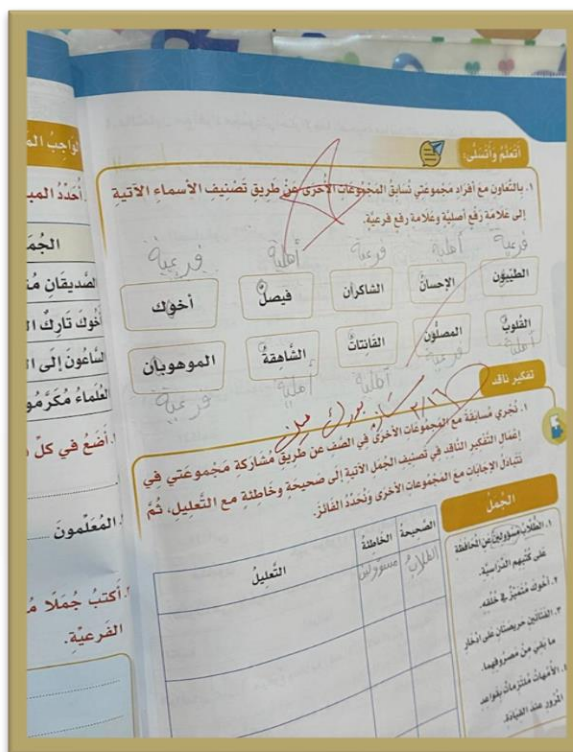 أتعلّم وأتسلّى:
١. بالتّعاون مع أفراد مجموعتي نُسابق المجموعات الأخرى عن طريق تصنيف الأسماء الآتية
إلى علامة رفع أصلية وعلامة رفع فرعيّة.
فرعية أصلية فرعية أصلية فرعية
الطيّبون الإحسانُ الشاكران فيصلُ أخوك
القلوبُ المصلّون القانتاتُ الشّاهقةُ الموهوبان
أصلية فرعية أصلية أصلية فرعية
تفكير ناقد
١. نُجري مُسابقة مع المجموعات الأخرى في الصّف عن طريق مشاركة مجموعتي في
إعمال التّفكير النّاقد في تصنيف الجُمل الآتية إلى صحيحة وخاطئة مع التّعليل، ثُمّ
نتبادل الإجابات مع المجموعات الأخرى ونُحدّد الفائز.
الجُمل الصّحيحة الخاطئة التّعليل
١. الطُّلّابُ مسؤولين عن المحافظة
على كُتُبِهم الدّراسيّة.
الطلابُ مسؤولين
٢. أخوك متميّز في خُلُقه.
٣. الفتاتين حريصتان على ادّخار
ما بقي من مصروفهما.
٤. الأُمّهاتُ مُلتزماتٌ بقواعد
المُرور عند القيادة.
الواجبُ
أُحدّد
الصّديقان
أخوك تارك
السّاعون إلى
العُلماءُ مُكرّمو
أضع في كلّ
المُعلّمون
أكتبُ جُملًا
الفرعيّة.